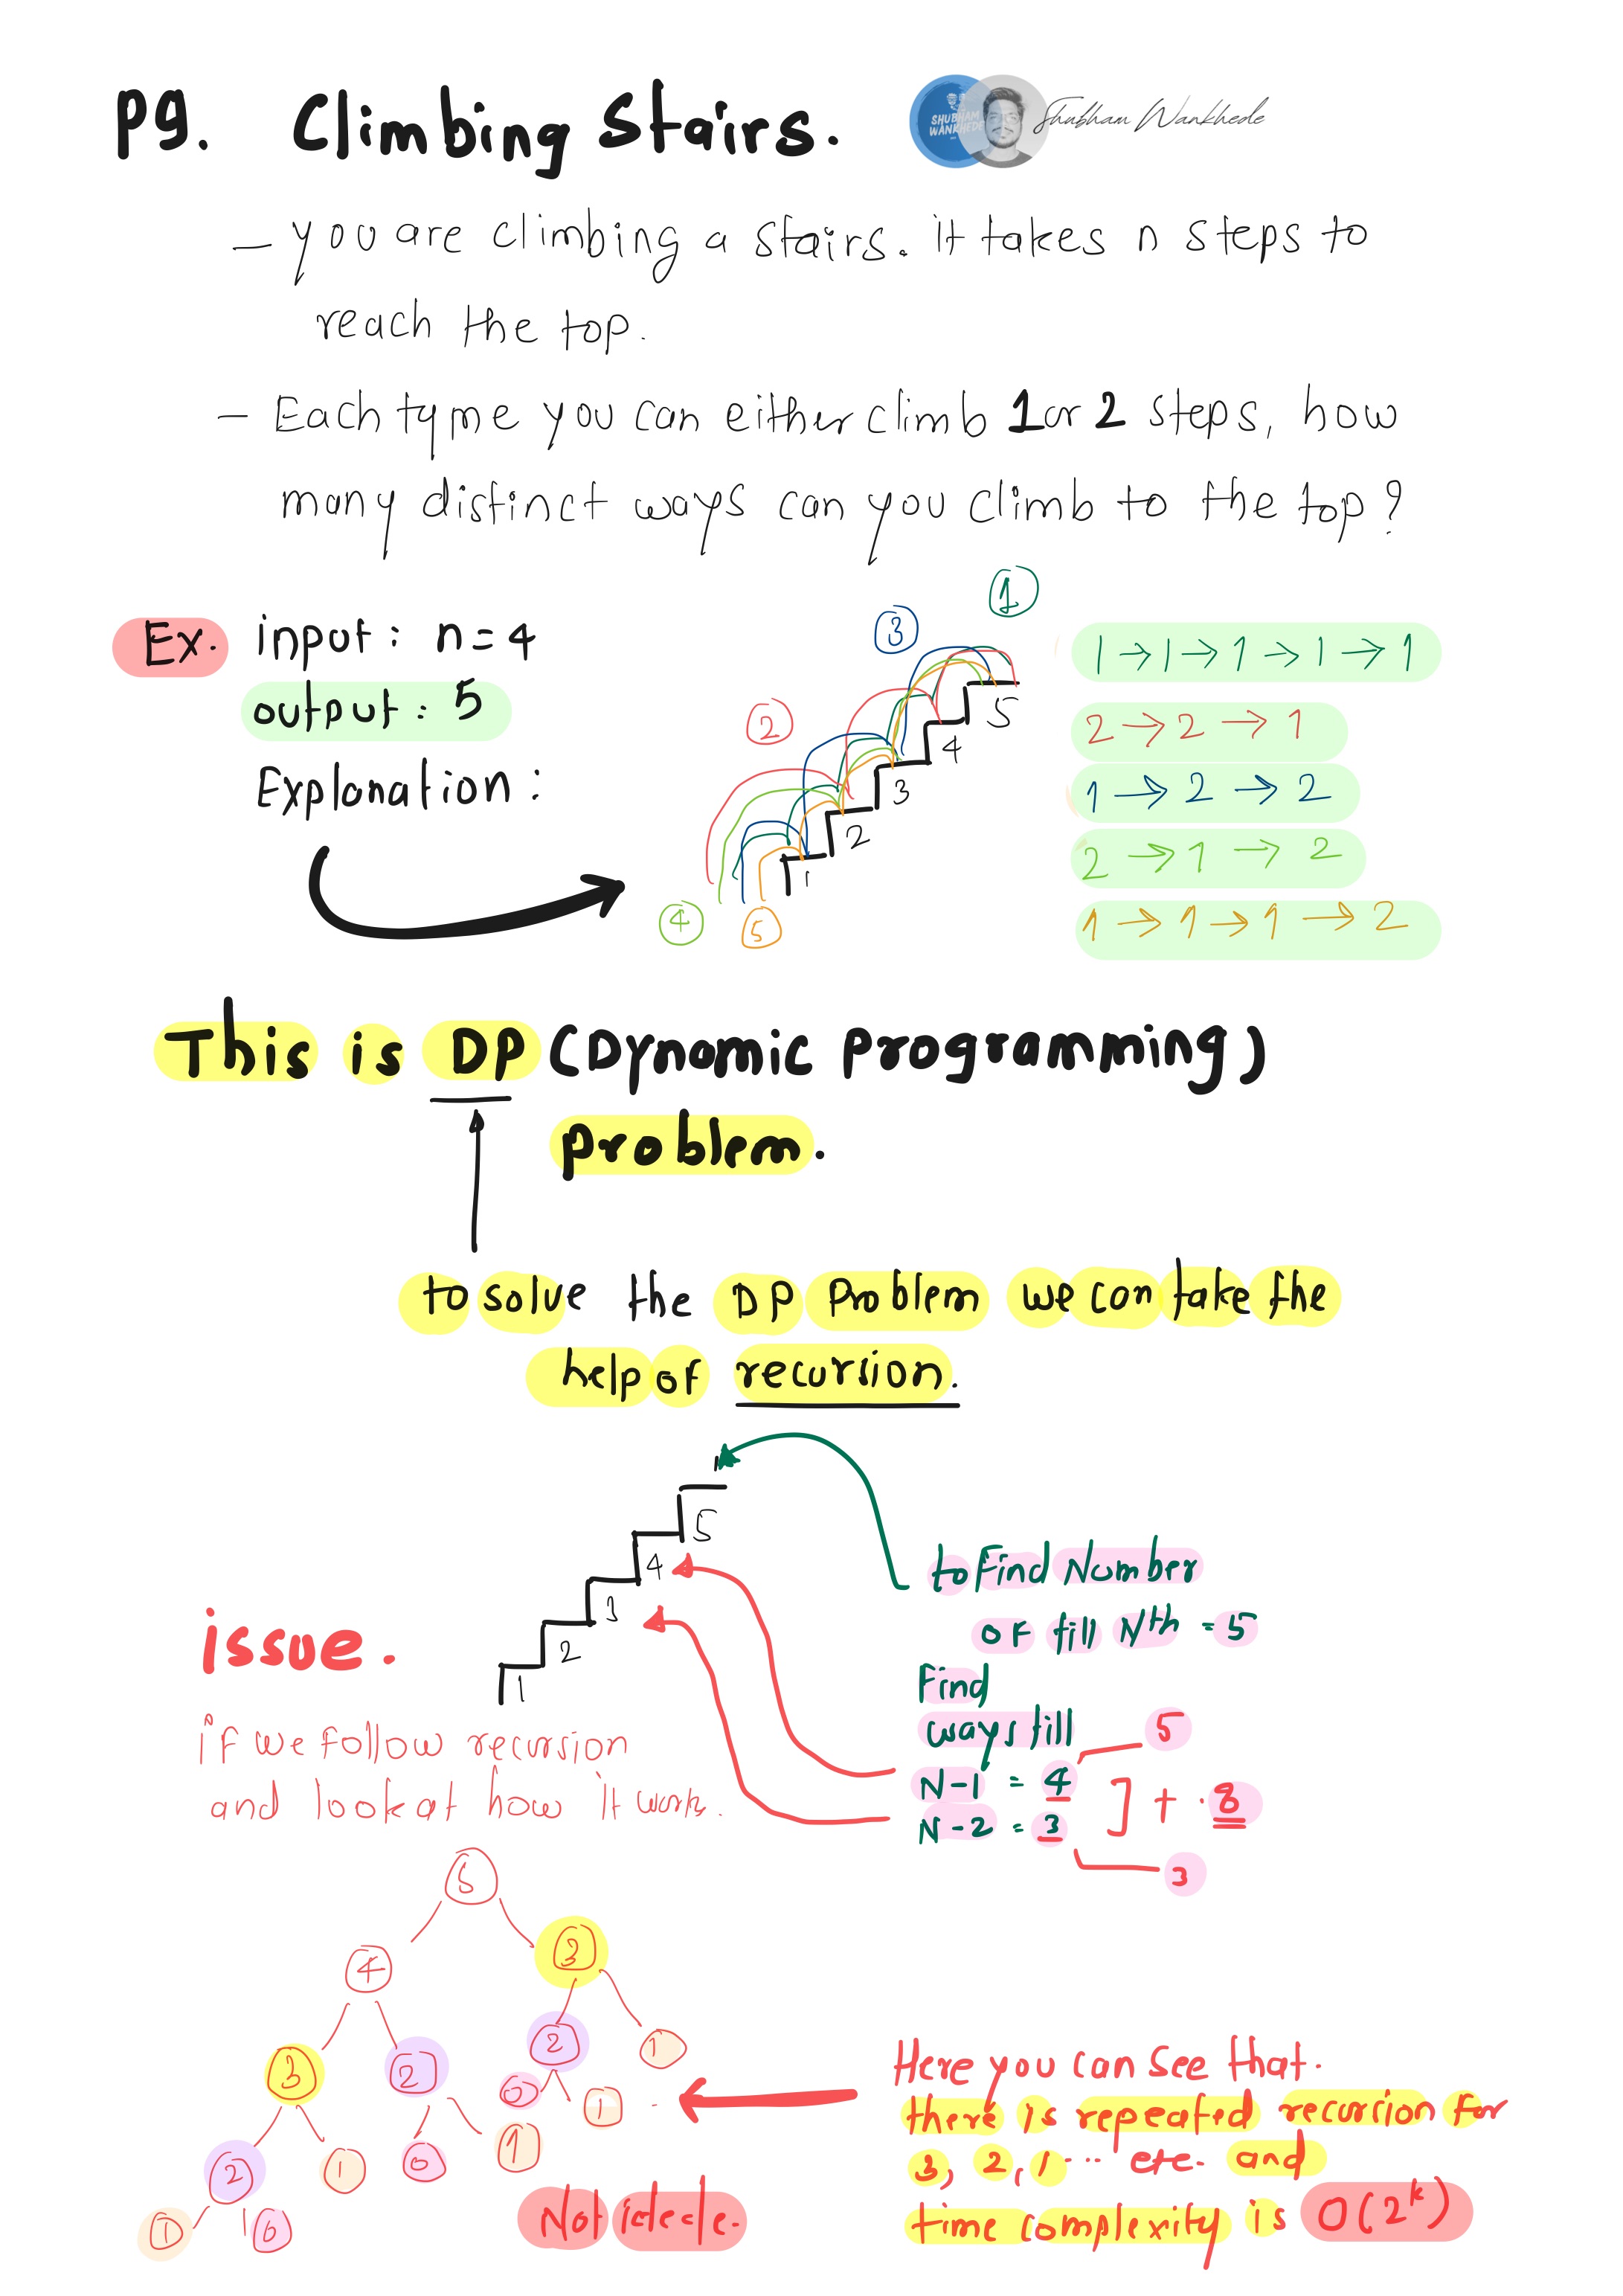 P9. Climbing Stairs.
SHUBHAM
WANKHEDE
Shubham Wankhede
- you are climbing a stairs. it takes n steps to
reach the top.
- Each tyme you can either climb 1 or 2 steps, how
many distinct ways can you climb to the top?
Ex. input: n=4
output: 5
Explanation:
1
3
2
5
4
3
2
1
4
5
1→1→1→1→1
2→2→1
1→2→2
2→1→2
1→1→1→2
This is DP (Dynamic Programming)
problem.
to solve the DP Problem we can take the
help of recursion.
5
4
3
2
1
to Find Number
of till Nth = 5
Find
ways till
N-1 = 4
N-2 = 3
5
] + · 8
3
issue.
if we follow recursion
and look at how it work.
5
4 3
3 2 2 1
2 1 0 1 0 1
1 0
Here you can see that.
there is repeated recursion for
3, 2, 1 ... etc. and
time complexity is O(2^k)